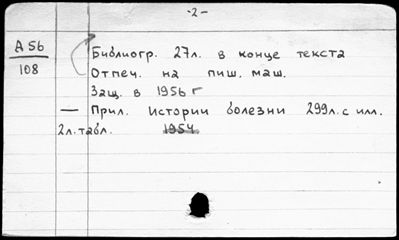 -2-
А 56
108
Библиогр. 27л. в конце текста
Отпеч. на пиш. маш.
Защ. в 1956 г
— Прил. Истории болезни 299л. с илл.
2л. табл. 1954